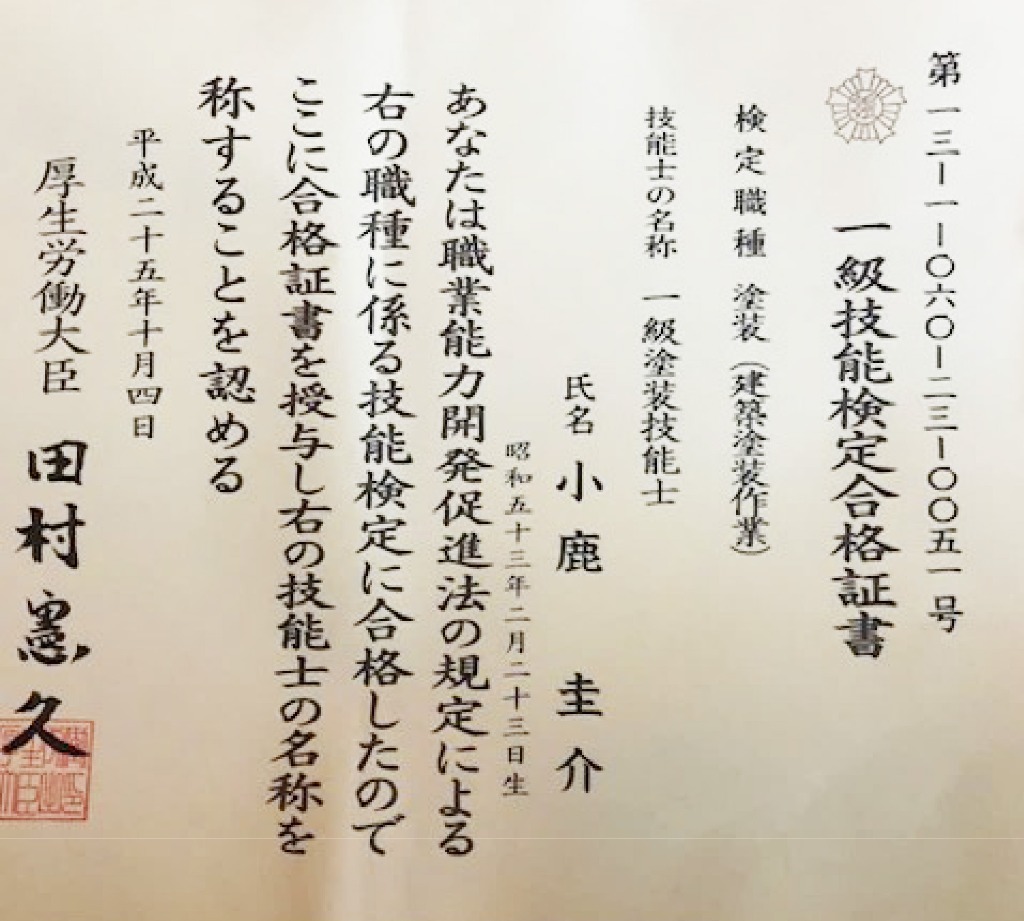 第一三-一-〇六〇-二三-〇〇五一号
一級技能検定合格証書
検定職種 塗装(建築塗装作業)
技能士の名称 一級塗装技能士
氏名 小鹿 圭介
昭和五十三年二月二十三日生
あなたは職業能力開発促進法の規定による
右の職種に係る技能検定に合格したので
ここに合格証書を授与し右の技能士の名称を
称することを認める
平成二十五年十月四日
厚生労働大臣 田村憲久